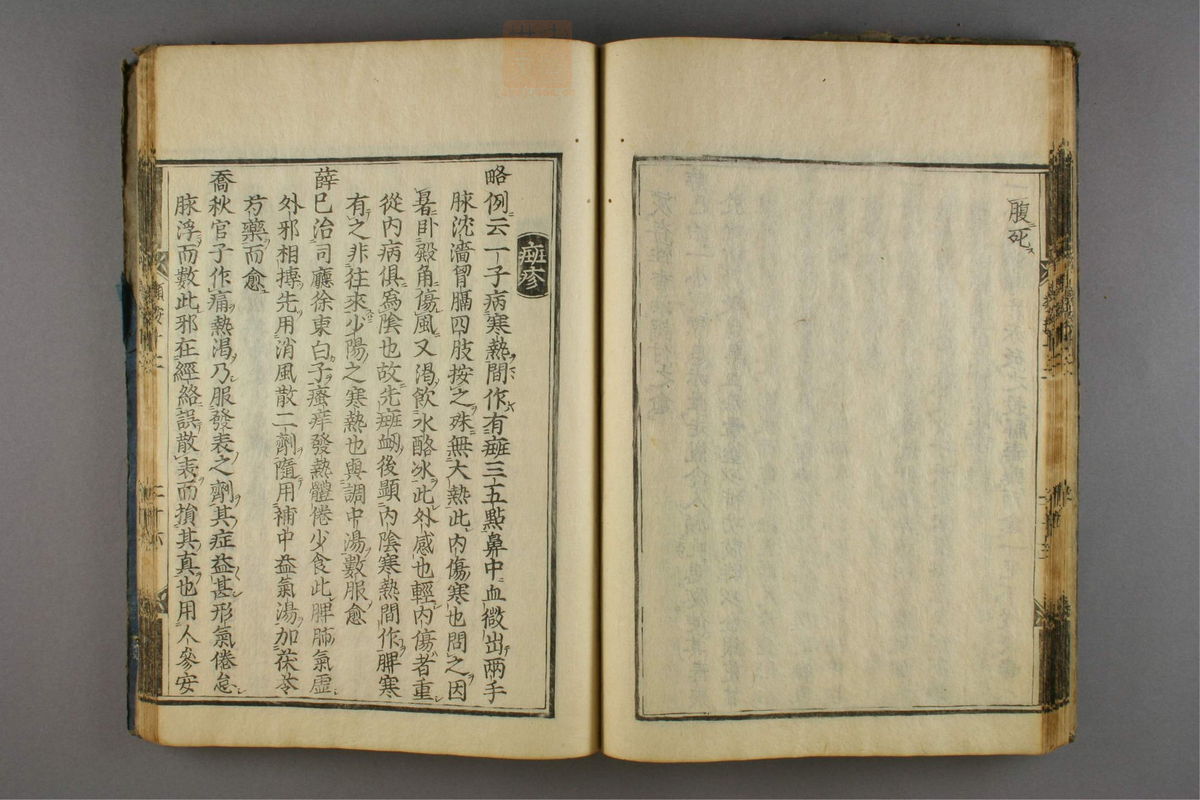 一腹死
斑疹
略例云一子病寒熱間作有斑三五點鼻中血微出兩手
脉沈濇胷膈四肢按之殊無大熱此内傷寒也問之因
暑卧殿角傷風又渴飲氷酪氷此外感也輕内傷者重
從内病俱爲陰也故先斑衂後顯内陰寒熱間作脾寒
有之非往來少陽之寒熱也與調中湯數服愈
薛已治司廳徐東白子瘙痒發熱體倦少食此脾肺氣虛
外邪相摶先用消風散二劑隨用補中益氣湯加茯苓
芍藥而愈
喬秋官子作痛熱渴乃服發表之劑其症益甚形氣倦怠
脉浮而數此邪在經絡誤散表而損其真也用人參安